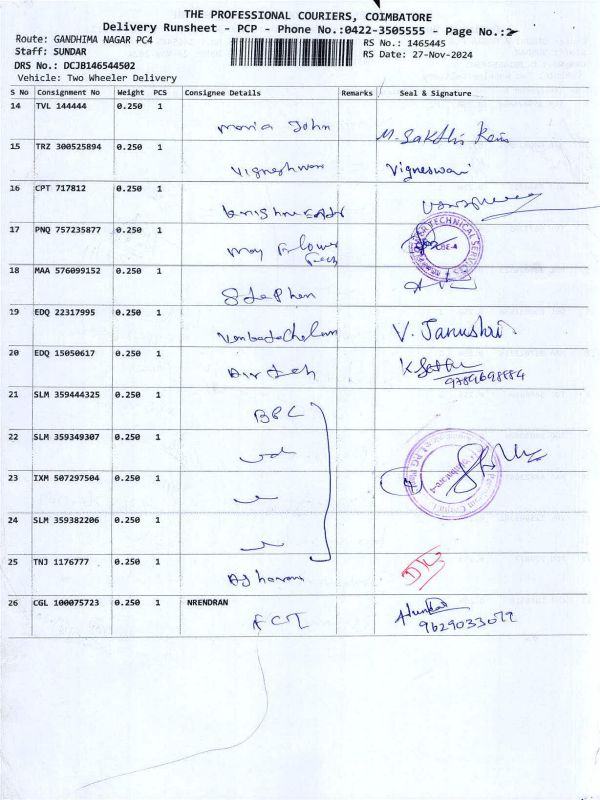 THE PROFESSIONAL COURIERS, COIMBATORE
Delivery Runsheet - PCP - Phone No.:0422-3505555 - Page No.:2
Route: GANDHIMA NAGAR PC4
Staff: SUNDAR
RS No.: 1465445
RS Date: 27-Nov-2024
DRS No.: DCJB146544502
Vehicle: Two Wheeler Delivery
S No Consignment No Weight PCS Consignee Details Remarks Seal & Signature
14 TVL 144444 0.250 1
Maria John
M. Sakthi
15 TRZ 300525894 0.250 1
Vigneshwari Vigneswari
16 CPT 717812 0.250 1
17 PNQ 757235877 0.250 1
May Flower
TECHNICAL SERVICES
CBE-4
18 MAA 576099152 0.250 1
Stephen
19 EDQ 22317995 0.250 1
Venkatachalam V. Janushri
20 EDQ 15050617 0.250 1
9789698884
21 SLM 359444325 0.250 1
BPC
22 SLM 359349307 0.250 1
23 IXM 507297504 0.250 1
24 SLM 359382206 0.250 1
25 TNJ 1176777 0.250 1
26 CGL 100075723 0.250 1 NRENDRAN
9629033077